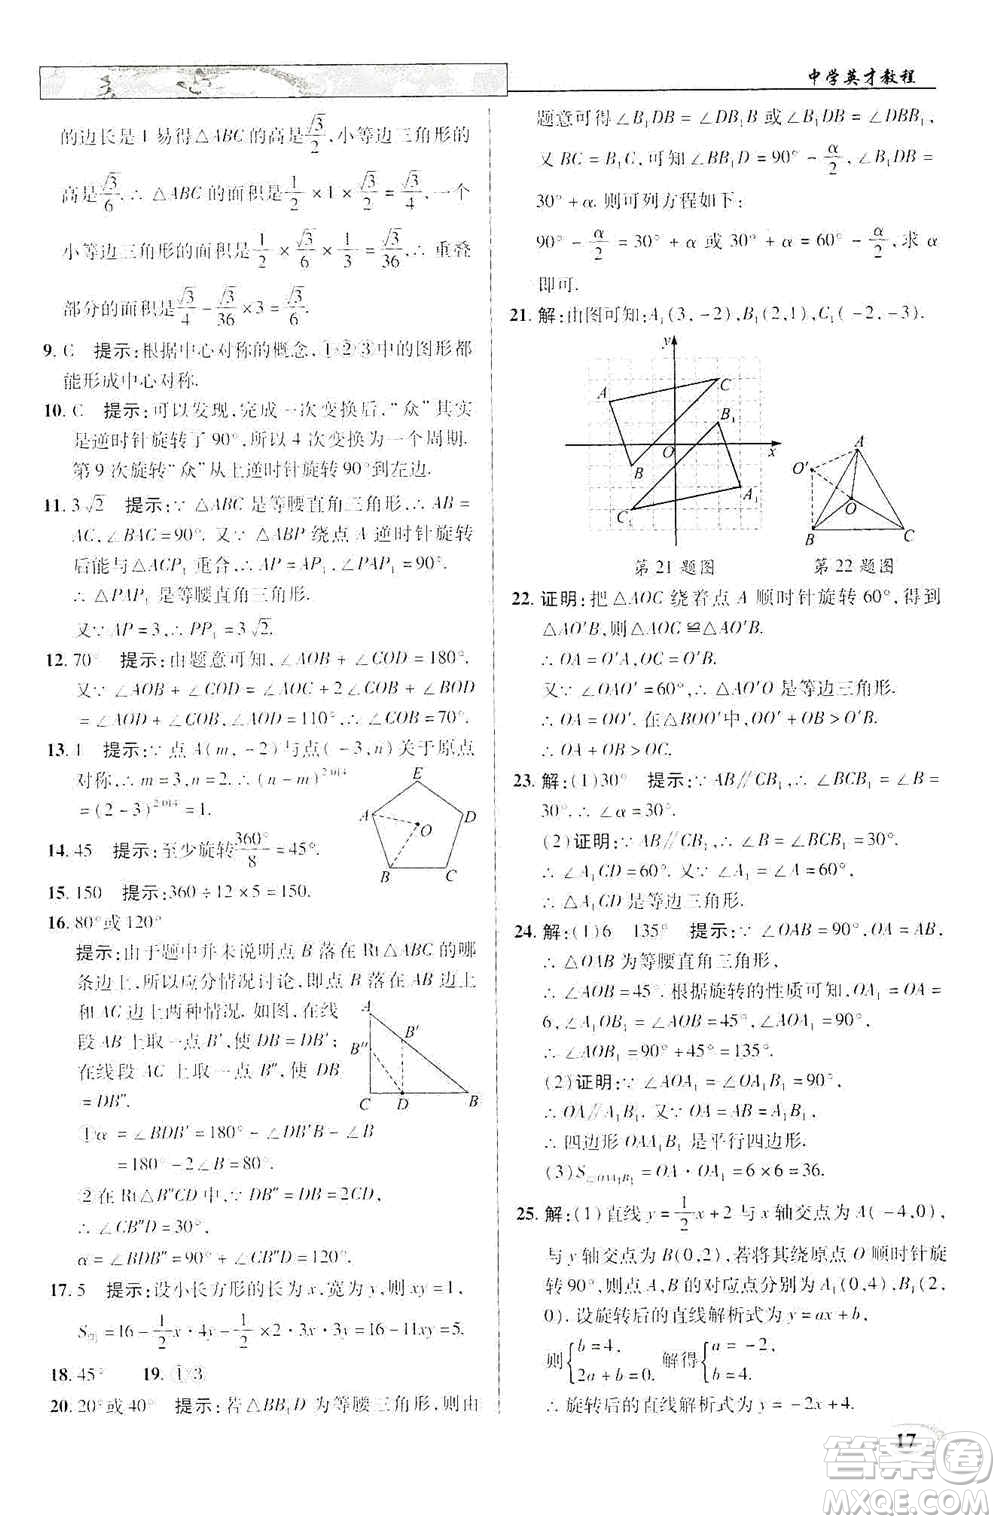 中学英才教程
的边长是 1 易得△ABC 的高是√3/2,小等边三角形的
高是√3/6.∴△ABC 的面积是1/2×1×√3/2=√3/4,一个
小等边三角形的面积是1/2×√3/6×1/3=√3/36,∴重叠
部分的面积是√3/4-√3/36×3=√3/6.
9. C 提示:根据中心对称的概念,①②③中的图形都
能形成中心对称.
10. C 提示:可以发现,完成一次变换后,“众”其实
是逆时针旋转了 90°,所以 4 次变换为一个周期.
第 9 次旋转“众”从上逆时针旋转 90°到左边.
11. 3√2 提示:∵△ABC 是等腰直角三角形,∴AB=
AC,∠BAC=90°. 又∵△ABP 绕点 A 逆时针旋转
后能与△ACP₁ 重合,∴AP=AP₁,∠PAP₁=90°.
∴△PAP₁ 是等腰直角三角形.
又∵AP=3,∴PP₁=3√2.
12. 70° 提示:由题意可知,∠AOB+∠COD=180°.
又∵∠AOB+∠COD=∠AOC+2∠COB+∠BOD
=∠AOD+∠COB,∠AOD=110°,∴∠COB=70°.
13. 1 提示:∵点 A(m,-2)与点(-3,n)关于原点
对称,∴m=3,n=2,∴(n-m)^2 014
=(2-3)^2 014=1.
14. 45 提示:至少旋转360°/8=45°.
15. 150 提示:360÷12×5=150.
E
A
D
O
B
C
16. 80°或 120°
提示:由于题中并未说明点 B 落在 Rt△ABC 的哪
条边上,所以应分情况讨论,即点 B 落在 AB 边上
和 AC 边上两种情况. 如图,在线
段 AB 上取一点 B′,使 DB=DB′;
在线段 AC 上取一点 B″,使 DB
=DB″.
A
B′
B″
C
D
B
①α=∠BDB′=180°-∠B-∠DB′B
=180°-2∠B=80°.
②在 Rt△B″CD 中,∵DB″=DB=2CD,
∴∠CB″D=30°.
α=∠BDB″=∠C+∠CB″D=120°.
17. 5 提示:设小长方形的长为 x,宽为 y,则 xy=1,
S②=16-1/2x·4y-1/2×2x·3y=16-2xy-3xy=16-5xy=11
18. 45° 19. ①③
20. 20°或 40° 提示:若△BB₁D 为等腰三角形,由
题意可得∠B₁DB=∠DB₁B 或∠B₁DB=∠DBB₁,
又 BC=B₁C,可知∠BB₁D=90°-α/2,∠B₁DB=
30°+α. 则可列方程如下:
90°-α/2=30°+α 或 30°+α=60°-α/2,求 α
即可.
21. 解:由图可知:A₁(3,-2),B₁(2,1),C₁(-2,-3).
y
A
C
B₁
O
x
B
A₁
C₁
第 21 题图
A
O′
O
B
C
第 22 题图
22. 证明:把△AOC 绕着点 A 顺时针旋转 60°,得到
△AO′B,则△AOC≌△AO′B.
∴OA=O′A,OC=O′B.
又∵∠OAO′=60°,∴△AO′O 是等边三角形.
∴OA=OO′. 在△BOO′中,OO′+OB>BO′.
∴OA+OB>OC.
23. 解:(1)30° 提示:∵AB∥CB₁,∴∠BCB₁=∠B=
30°.∴∠α=30°.
(2)证明:∵AB∥CB₁,∴∠B=∠BCB₁=30°.
∴∠A₁CD=60°. 又∵∠A₁=60°,
∴△A₁CD 是等边三角形.
24. 解:(1)6 135° 提示:∵∠OAB=90°,OA=AB,
∴△OAB 为等腰直角三角形,
∴∠AOB=45°. 根据旋转的性质可知,OA₁=OA=
6,∠A₁OB₁=∠AOB=45°,∠AOA₁=90°.
∴∠AOB₁=90°+45°=135°.
(2)证明:∵∠AOA₁=∠OA₁B₁=90°,
∴OA∥A₁B₁. 又∵OA=AB=A₁B₁,
∴四边形 OAA₁B₁ 是平行四边形.
(3)S▱OAA₁B₁=OA·OA₁=6×6=36.
25. 解:(1)直线 y=1/2x+2 与 x 轴交点为 A(-4,0),
与 y 轴交点为 B(0,2),若将其绕原点 O 顺时针旋
转 90°,则点 A,B 的对应点分别为 A₁(0,4),B₁(2,
0). 设旋转后的直线解析式为 y=ax+b,
则{b=4, 2a+b=0. 解得{a=-2, b=4.
∴旋转后的直线解析式为 y=-2x+4.
17
答案圈
MXQE.COM